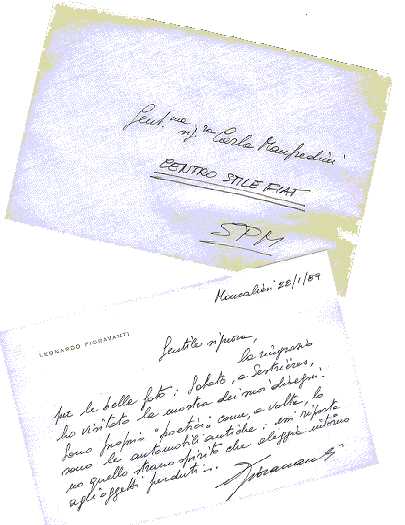 Gent.ma sig.ra Carla Manfredini
CENTRO STILE FIAT
SPM
Moncalieri 22/1/89
LEONARDO FIORAVANTI
Gentile signora,
la ringrazio
per le belle foto; Sabato, a Sestrières,
ho visitato la mostra dei suoi disegni:
sono proprio "poetici" come, a volte, lo
sono le automobili antiche: mi riporta
no quello strano spirito che aleggia intorno
agli oggetti perduti...
L Fioravanti